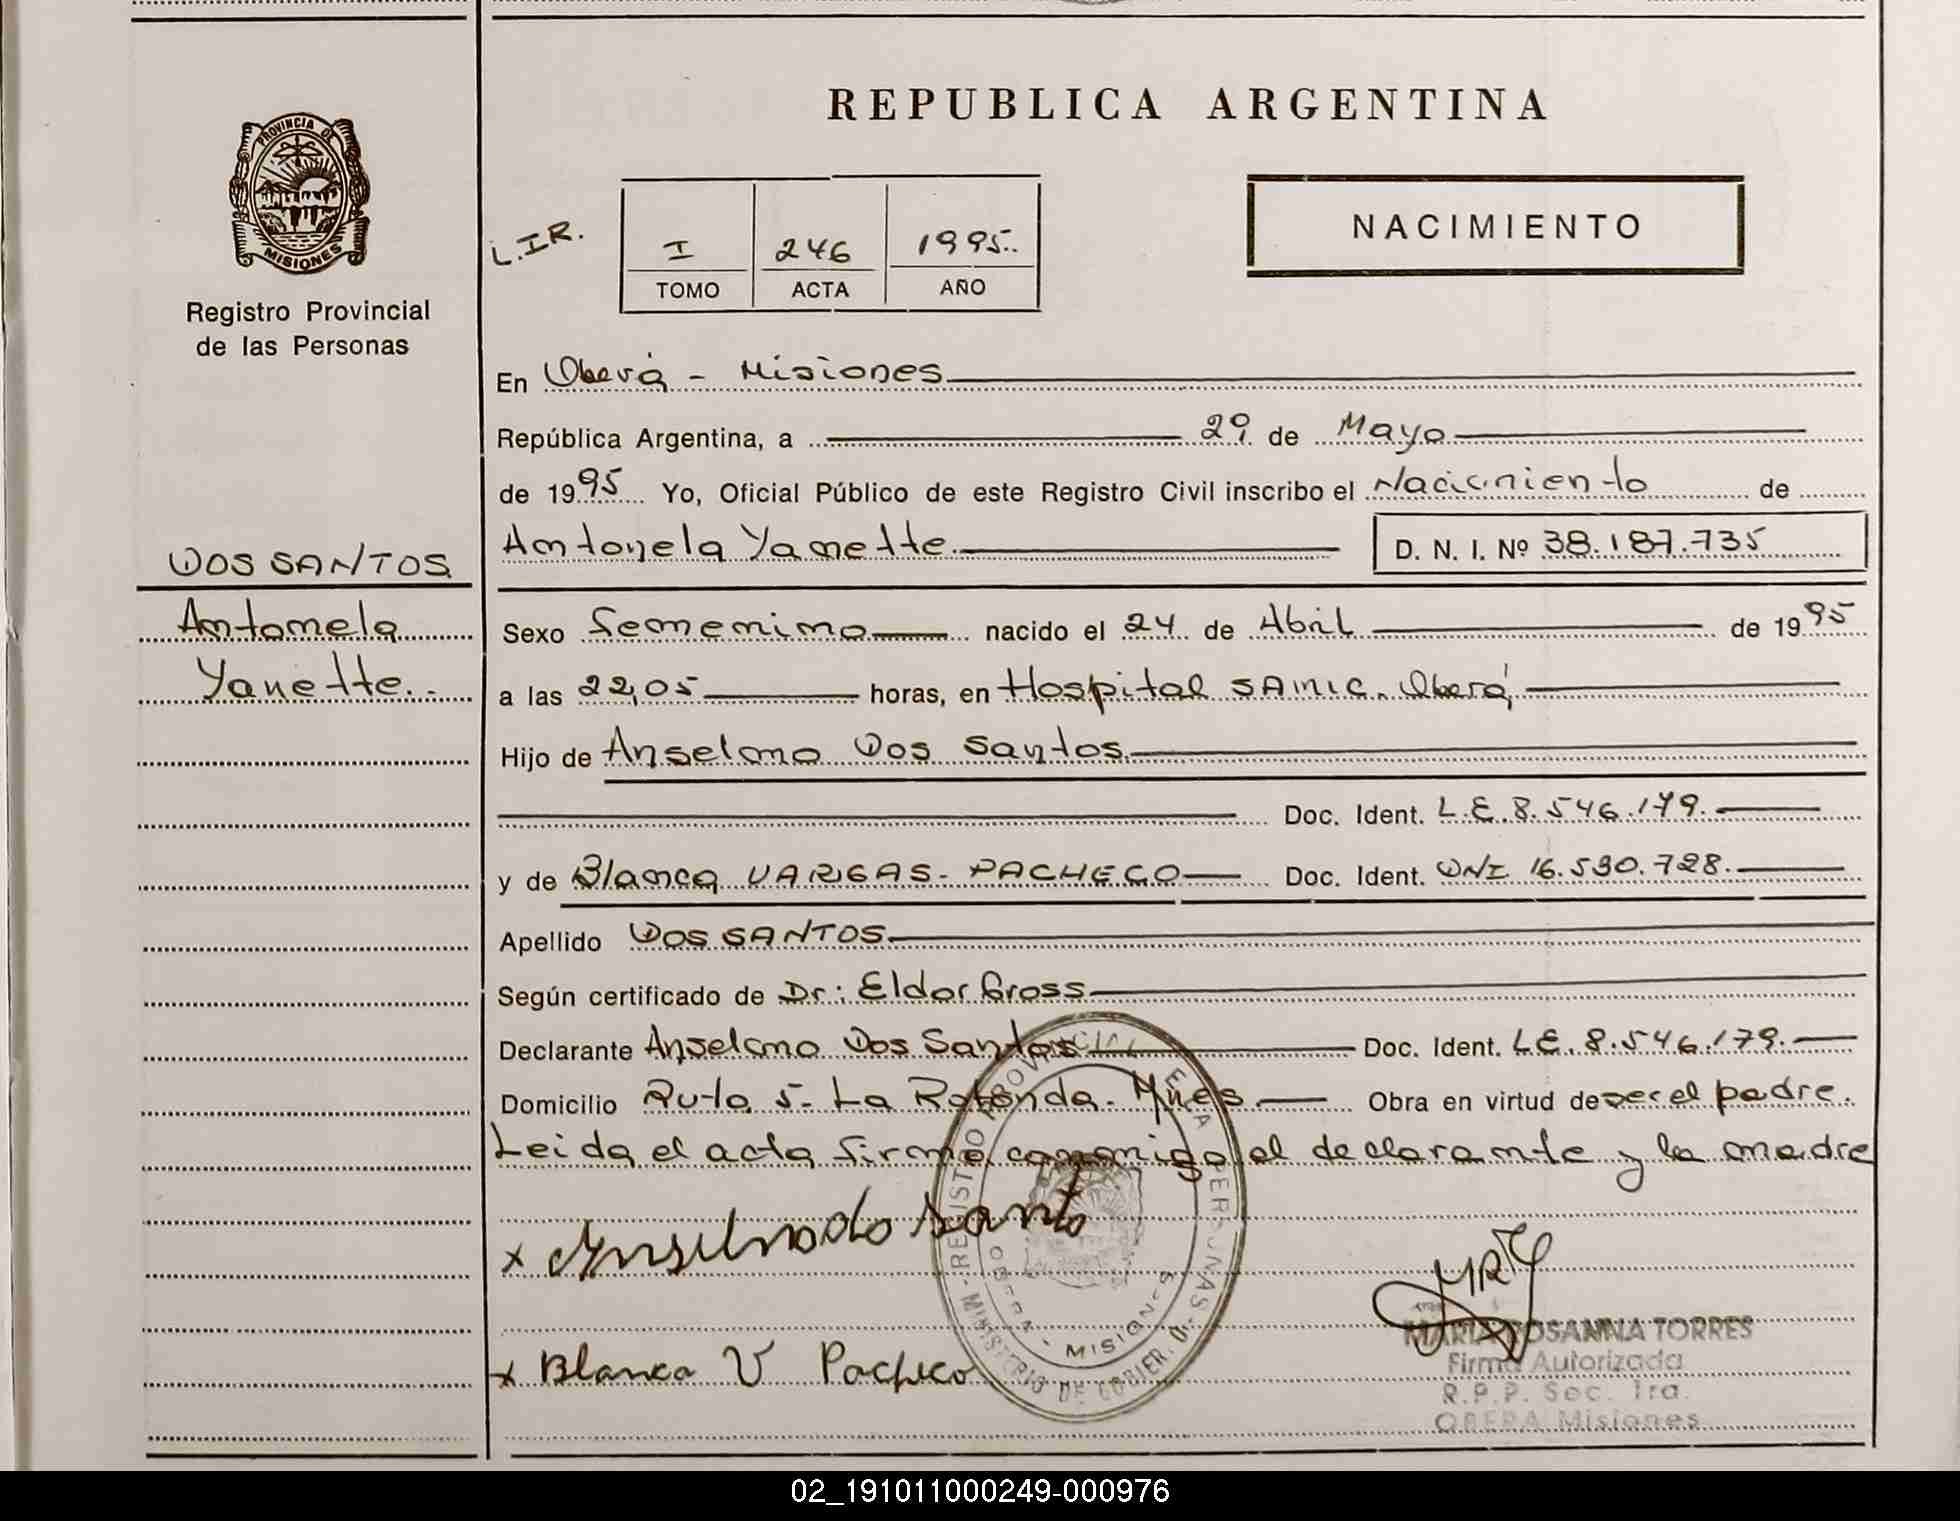 PROVINCIA DE
MISIONES
Registro Provincial
de las Personas
DOS SANTOS
Antonela
Yanette.-
REPUBLICA ARGENTINA
L.I.R.
I 246 1995.
TOMO ACTA AÑO
NACIMIENTO
En Oberá - Misiones
República Argentina, a 29, de Mayo
de 1995 Yo, Oficial Público de este Registro Civil inscribo el Nacimiento de
Antonela Yanette. D. N. I. Nº 38.187.735
Sexo femenino nacido el 24 de Abril de 1995
a las 22,05 horas, en Hospital SAMIC. Oberá
Hijo de Anselmo Dos Santos.
Doc. Ident. L.E. 8.546.179.
y de Blanca VARGAS - PACHECO Doc. Ident. DNI 16.530.728.
Apellido DOS SANTOS
Según certificado de Dr: Eldor Gross
Declarante Anselmo Dos Santos Doc. Ident. LE. 8.546.179.
Domicilio Ruta 5- La Rotonda. Mnes Obra en virtud de ser el padre.
Leida el acta firma conmigo el declarante y la madre
x Anselmo do Santo
x Blanca V Pacheco
REGISTRO PROVINCIAL PERSONAS
MINISTERIO DE GOBIER.
OBERA - MISIONES
MARIA ROSANNA TORRES
Firma Autorizada
R.P.P. Sec. 1ra.
OBERA Misiones
02_191011000249-000976